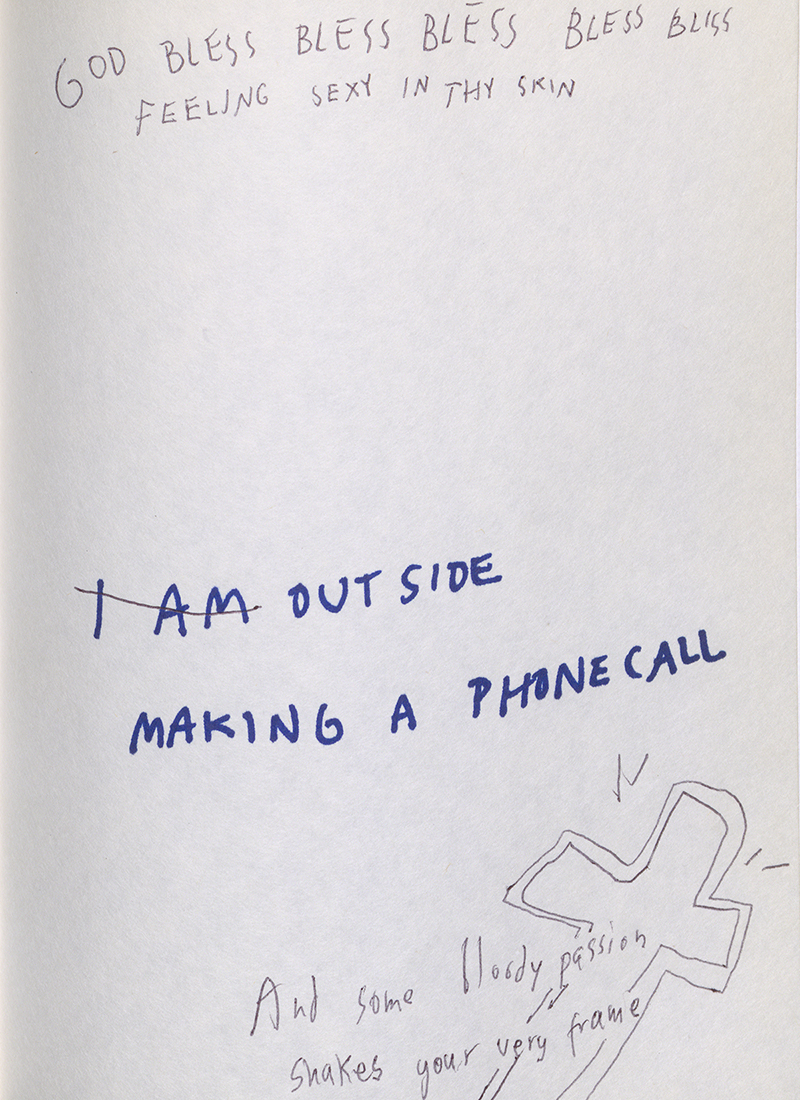 GOD BLESS BLESS BLESS BLESS BLISS
FEELING SEXY IN THY SKIN
I AM OUTSIDE
MAKING A PHONECALL
And some bloody passion
shakes your very frame